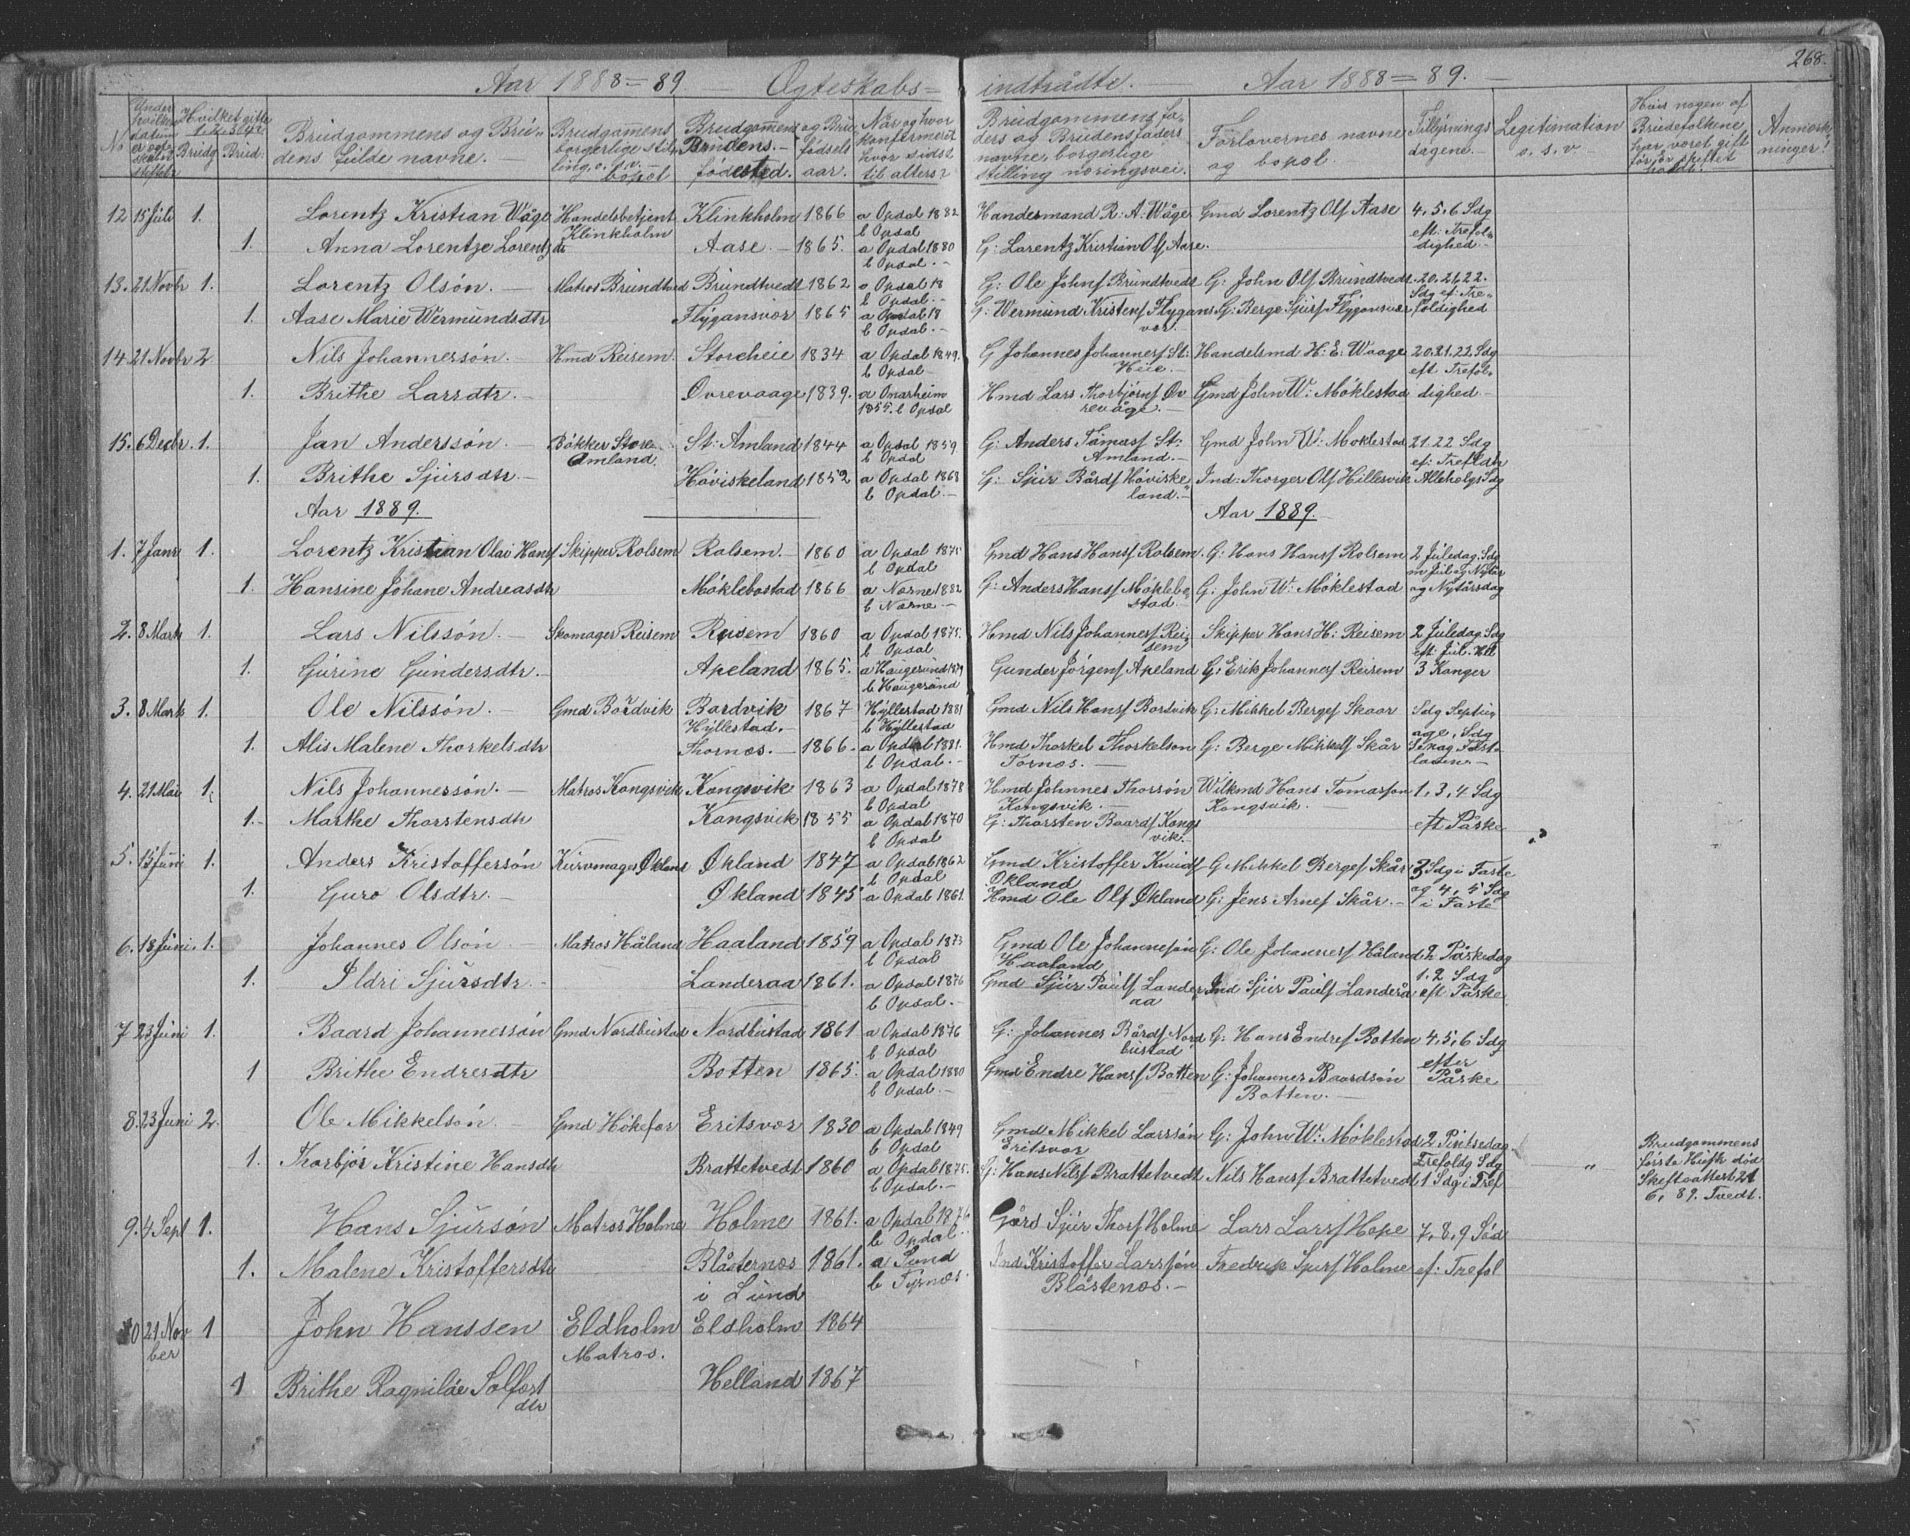 268.
Aar 1888-89. Ægteskabs= indtrådte. Aar 1888=89.
No Under hvilken datum Hvilket gifte Brudg Brud. Brudgommens og Brudens fulde navne. Brudgommens borgerlige stilling, o.s.v. bopæl Brudgommens og Brudens fødested. fødselsaar. Når og hvor konfirmeret hvor sidst til alters? Brudgommens faders og Brudens faders navne, borgerlige stilling næringsvei. Forlovernes navne og bopæl. Tillysningsdagene. Legitimation o. s. v. Hvis nogen af Brudefolkene har været gift før, er skiftet holdt. Anmærkninger!
12 15 Juli 1. Lorentz Kristian Våge Handelsbetjent Klinkholm Klinkholm 1866 a Opdal 1882 b Opdal Handesmand R: A: Våge Gmd Lorentz Ols Aase 4, 5, 6 Sdg eft: Trefoldighed.
1. Anna Lorentze Lorentzdt Aase 1865. a Opdal 1880 b Opdal. G: Lorentz Kristian Ols Aase.
13. 21 Novbr 1. Lorentz Olsøn. Matros Brundtved Brundtvedt 1862 a Opdal 18 b Opdal. G: Ole Johns Brundtvedt G: John Ols Brundtvedt 20, 21, 22. Sdg ef: Trefoldighed
1. Aase Marie Wermundsdtr Flygansvær 1865 a Opdal 18 b Opdal. G: Wermund Kristens Flygansvær. G: Berge Sjurs Flygansvær
14. 21 Novbr 2. Nils Johannessøn. Hmd Reisem. Storeheie 1834 a Opdal 1849. b Opdal G Johannes Johannes St: Heie Handelsmd H: E: Waage 20, 21, 22. Sdg eft Trefoldighed
1. Brithe Larsdtr. Øvrevaage 1839. a Onarheim 1855. b Opdal Hmd Lars Thorbjørns Øvrevåge. Gmd John W: Møklestad
15. 6 Decbr. 1. Jan Anderssøn. Bøkker Store Amland St: Amland 1844 a Opdal 1859 b Opdal G: Anders Tømas St: Amland. Gmd John W: Møklestad 21. 22 Sdg ef: Trefoldh
1. Brithe Sjursdtr. Høviskeland 1852 a Opdal 1868 b Opdal. G: Sjur Bårds Høviskeland. Ind: Thorger Ols Hillesvik Allehelgs Sdg
Aar 1889. Aar 1889.
1. 7 Janr 1. Lorentz Kristian Olai Hans Skipper Rolsem Rolsem. 1860 a Opdal 1875 b Opdal Gmd Hans Hans Rolsem. G: Hans Hans Rolsem 2 Juledag. Sdg m Jul og Nytår og Nytårsdag
1. Hansine Johane Andreasdtr Møklebostad 1866 a Nærne 1882 b Nærne G: Anders Hans Møklebostad G: John W: Møklestad
2. 8 Marts 1. Lars Nilssøn. Skomager Reisem Reisem 1860 a Opdal 1875. b Opdal Hmd Nils Johannes Reisem Skipper Hans H: Reisem 2 Juledag Sdg eft: Jul.
1. Gurine Gundersdtr. Apeland 1865. a Haugesund 1879 b Haugesund Gunder Jørgens Apeland G: Erik Johannes Reisem 3 Konger
3. 8 Marts 1. Ole Nilssøn. Gmd Bordvik Bardvik Hyllestad. 1867 Hyllestad 1881 b Hyllestad Gmd Nils Hans Borsvik G: Mikkel Berges Skaar Sdg Septuage, Sdg
1. Alis Malene Thorkelsdtr Thornæs. 1866. a Opdal 1881. b Opdal. Hmd Thorkel Thorkelson Tornæs. G: Berge Mikkels Skår
4. 21 Mai 1. Nils Johannessøn. Matros Kongsvik Kongsvik 1863 a Opdal 1878 b Opdal Hmd Johnnes Thorsøn Kongsvik. Wilkmd Hans Tomassøn Kongsvik. 1, 3, 4 Sdg eft Påske
1. Marthe Thorstensdtr Kongsvik 1855 a Opdal 1870 b Opdal G: Thorsten Baards Kongsvik.
5. 15 Juni 1. Anders Kristoffersøn Kurvmager Økland Økland 1847 a Opdal 1862 b Opdal Gmd Kristoffer Knuds Økland G Mikkel Berges Skår 3 Sdg i Faste og 4, 5 Sdg i Faste
1. Guro Olsdtr. Økland 1845 a Opdal 1861. Hmd Ole Ols Økland G: Jens Arnes Skår.
6. 18 Juni 1. Johannes Olsøn Matros Håland Haaland 1859 a Opdal 1873 b Opdal Gmd Ole Johannesøn Haaland G: Ole Johannes Håland 2 Påskedag 1. 2 Sdg eft Påske
1. Ildri Sjursdtr Landeraa 1861. a Opdal 1876 b Opdal. Gmd Sjur Pauls Landeraa Ind Sjur Pauls Landerå
7 23 Juni 1. Baard Johannessøn Gmd Nordbustad Nordbustad 1861 a Opdal 1876 b Opdal G: Johannes Bårds Nordbustad G: Hans Endres Botten 4, 5, 6 Sdg efter Påske
1 Brithe Endresdtr Botten 1865. a Opdal 1880 b Opdal. Gmd Endre Hans Botten G: Johannes Baardsøn Botten.
8. 23 Juni 2. Ole Mikkelsøn. Gmd Høkefær Eritsvær 1830 a Opdal 1849 b Opdal Gmd Mikkel Larssøn Eritsvær G: John W: Møklestad 2 Pintsedag Trefoldg Sdg 1 Sdg i Tref
1. Thorbjør Kristine Hansdtr Brattetvedt 1860 a Opdal 1875. b Opdal. G: Hans Nils Brattetvedt Nils Hans Brattetvedt " Brudgommens første Hustr død Skifteattest 21 6, 89. Tvedt.
9. 4 Sept 1. Hans Sjursøn Matros Holme Holme 1861. a Opdal 1876 b Opdal. Gård Sjur Thors Holme Lars Lars Hope 7, 8, 9 Sød ef: Trefol
1. Malene Kristoffersdtr Blåsternæs i Lund 1861. a Sund b Tysnæs. Ind: Kristoffer Larssøn Blåstenæs. Fredrik Sjurs Holme
10 21 November 1 John Hanssen Eldholm Matros. Eldholm 1864
1 Brithe Ragnilde Solfæstdtr Helland 1867